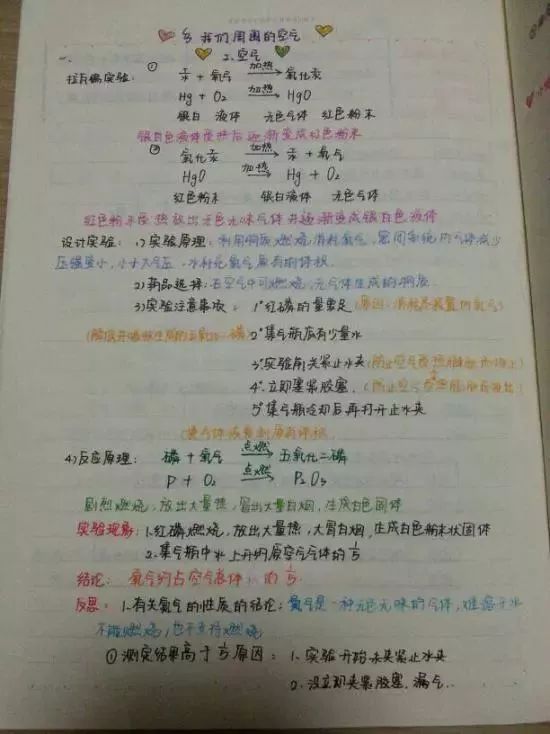 我们周围的空气
2.空气
一.
拉瓦锡实验: ① 汞 + 氧气 加热 氧化汞
Hg + O₂ 加热 HgO
银白 液体 无色气体 红色粉末
银白色液体受热后逐渐变成红色粉末
② 氧化汞 加热 汞 + 氧气
HgO 加热 Hg + O₂
红色粉末 银白液体 无色气体
红色粉末受热放出无色无味气体并逐渐变成银白色液体
设计实验: 1)实验原理: 利用物质燃烧消耗氧气,密闭系统内气体减少
压强变小,小于大气压,水补充氧气原有的体积
2)药品选择: 在空气中可燃烧,无气体生成的物质
3)实验注意事项: 1°红磷的量要足(原因:消耗尽装置内氧气)
2°集气瓶底有少量水
3°实验前夹紧止水夹
4°立即塞紧胶塞.
5°集气瓶冷却后再打开止水夹
4)反应原理: 磷 + 氧气 点燃 五氧化二磷
P + O₂ 点燃 P₂O₅
剧烈燃烧,放出大量热,冒出大量白烟,生成白色固体
实验现象: 1.红磷燃烧,放出大量热,大冒白烟,生成白色粉末状固体
2.集气瓶中水上升约原空气气体的1/5
结论: 氧气约占空气总体积的1/5
反思: 1.有关氮气的性质的结论: 氮气是一种无色无味的气体,难溶于水
不能燃烧,也不支持燃烧
①测定结果高于1/5原因: 1.实验开始未夹紧止水夹
2.没立即夹紧胶塞.漏气.